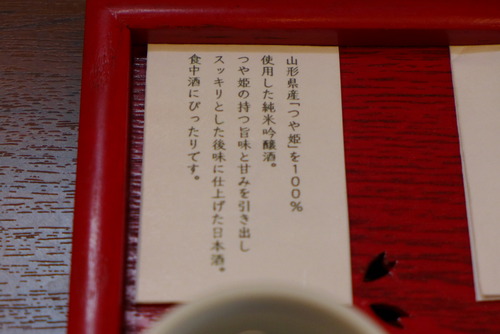 山形県産「つや姫」を100%
使用した純米吟醸酒。
つや姫の持つ旨味と甘みを引き出し
スッキリとした後味に仕上げた日本酒。
食中酒にぴったりです。